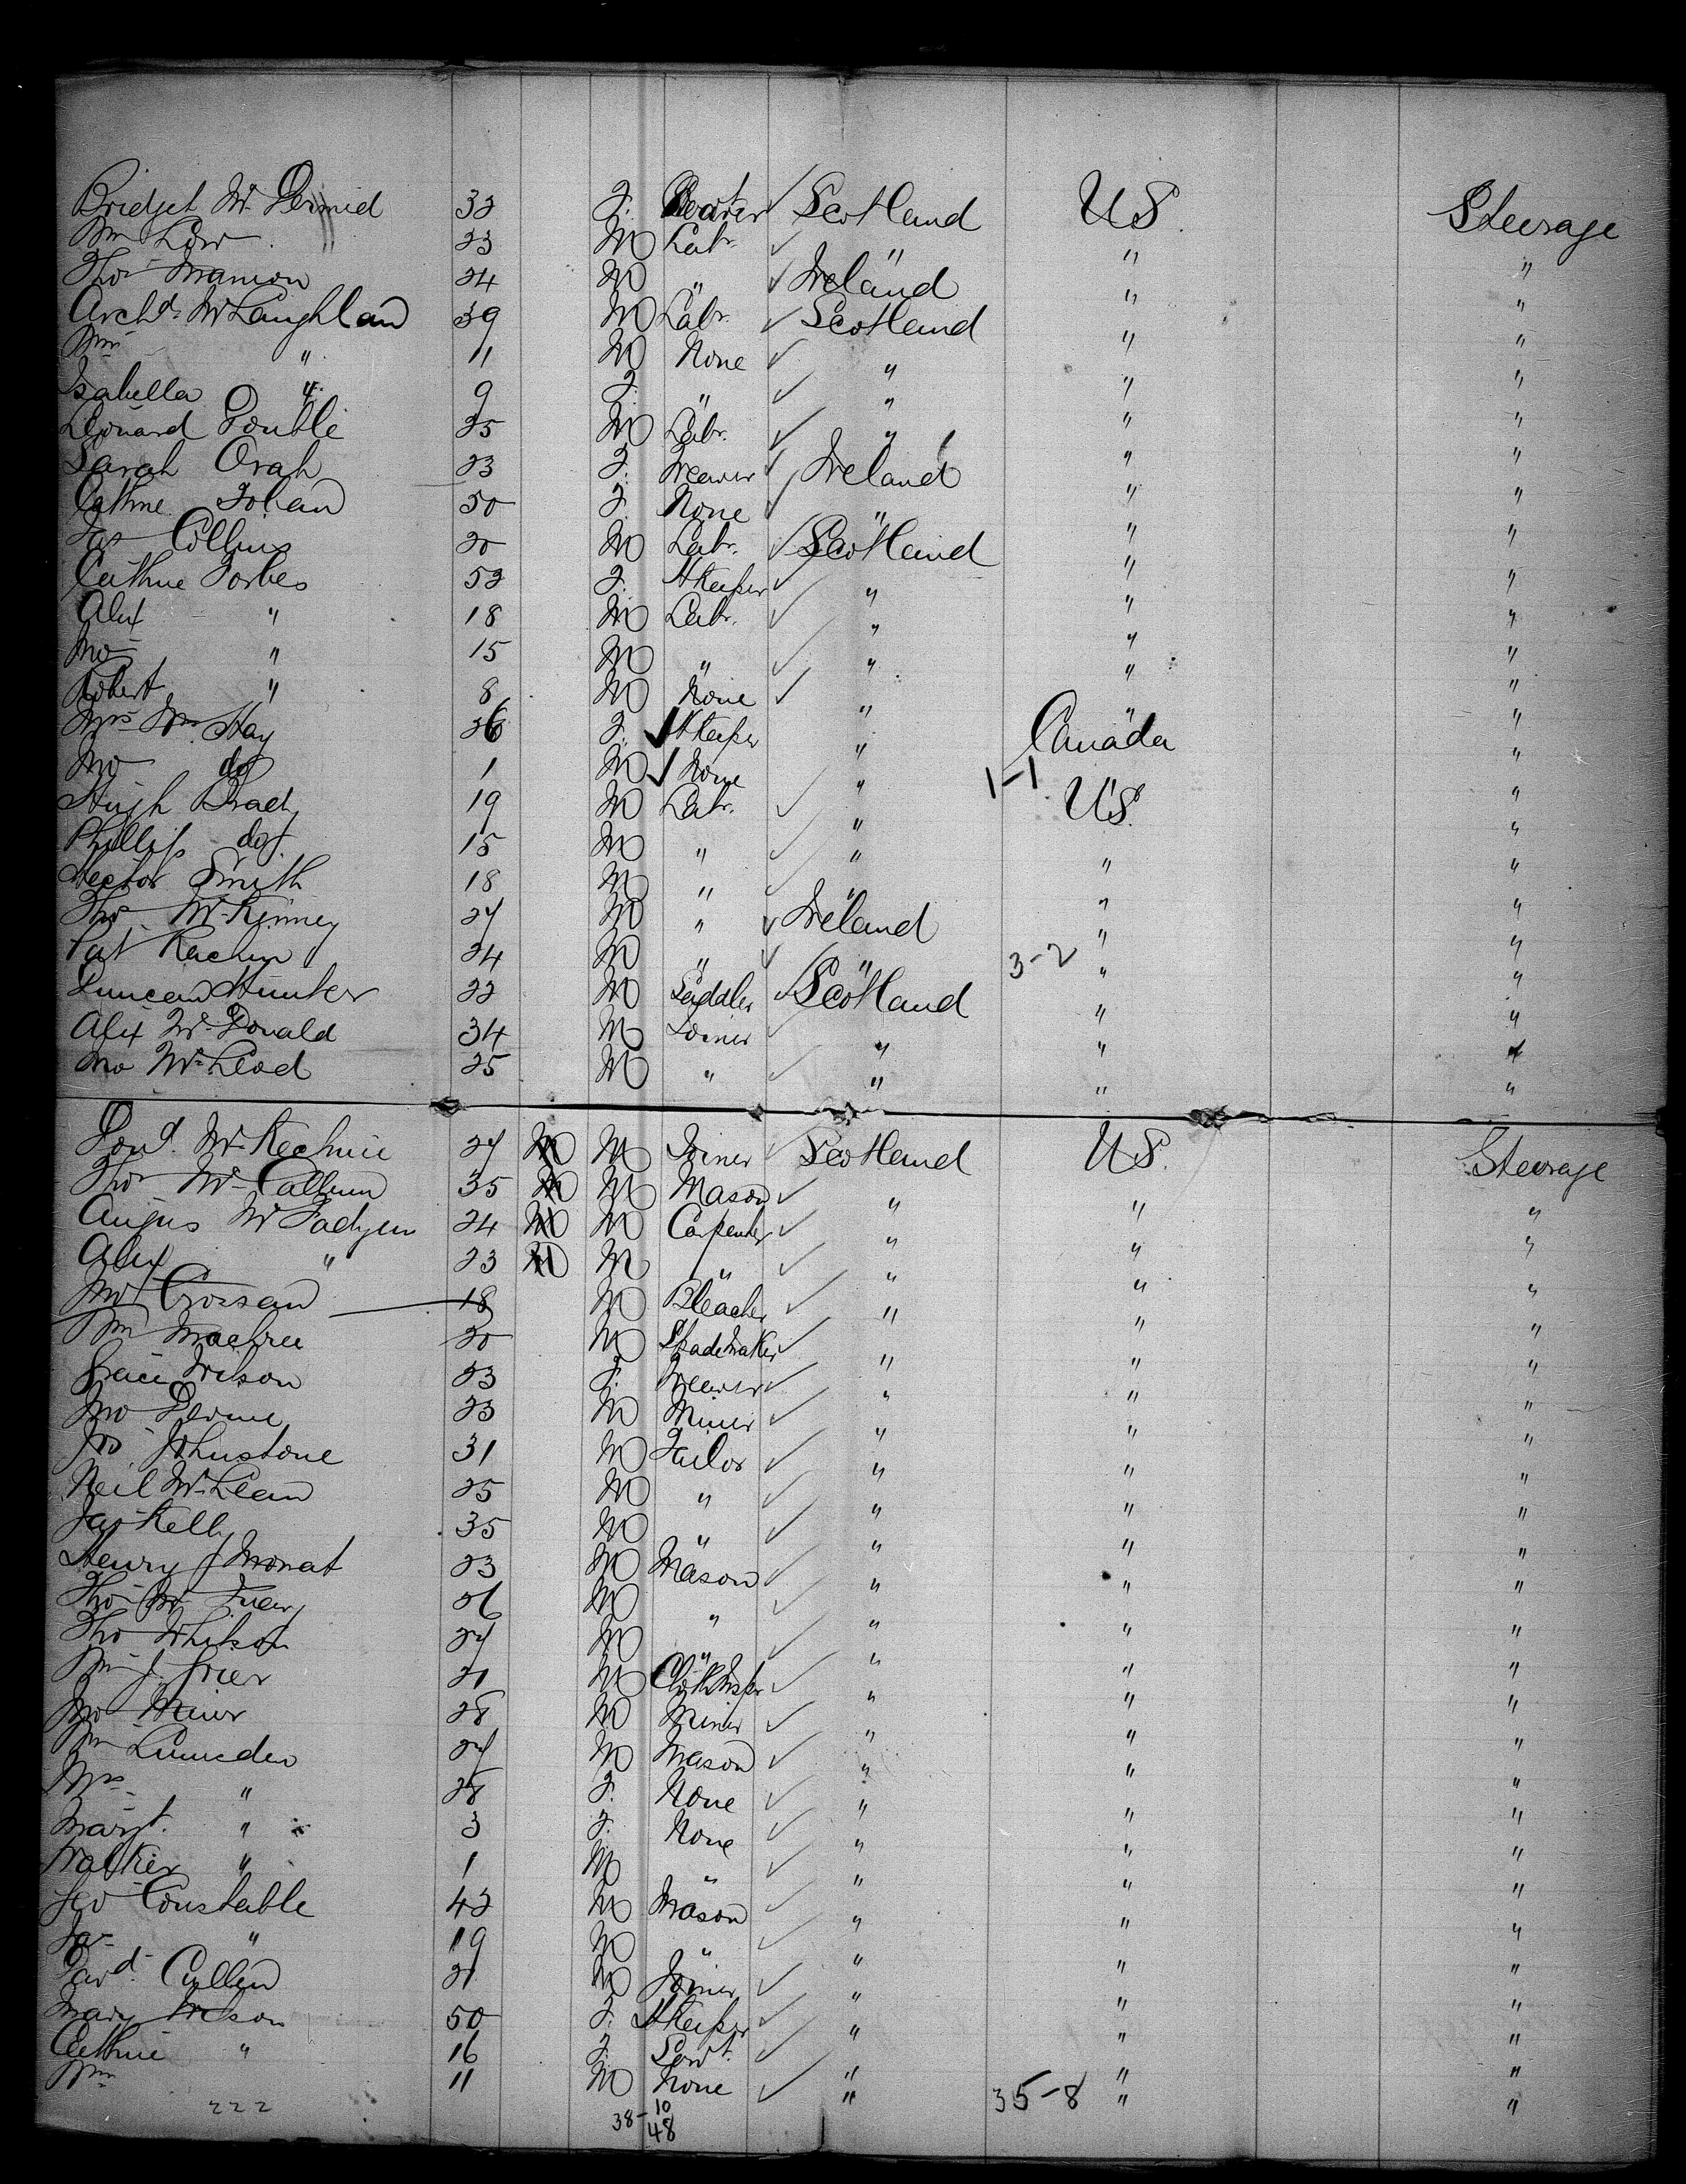 Bridget Mc Dermid 32 F. Scotland U S. Steerage
Wm Low 23 M Labr. " " "
Thos Manion 24 M " Ireland " "
Archd. McLaughlan 39 M Labr. Scotland " "
Wm " 11 M None " " "
Isabella " 9 F. " " " "
Leonard 25 M Labr. " " "
Sarah Orah 23 F. Weaver Ireland " "
Cathne. 50 F. None " " "
Jas Collins 20 M Labr. Scotland " "
Cathne Forbes 52 F. HKeeper " " "
Alex " 18 M Labr. " " "
Jno " 15 M " " " "
Robert " 8 M None " " "
Mrs Wm Hay 26 F. HKeeper " Canada "
Jno do 1 M None " 1-1 "
Hugh Brady 19 M Labr. " U.S. "
Phillip do 15 M " " " "
Hector Smith 18 M " " " "
Thos McKinney 27 M " Ireland " "
Pat 24 M " " 3-2 " "
Duncan Hunter 22 M Saddler Scotland " "
Alex McDonald 34 M Joiner " " "
Jno McLeod 25 M " " " "
Dond. McKechnie 27 M M Joiner Scotland U S. Steerage
Thos McCallum 35 M M Mason " " "
Angus McFadyen 24 M M Carpenter " " "
Alex " 23 M M " " " "
Jno Crossan 18 M Bleacher " " "
Wm Machree 20 M Spademaker " " "
Grace Wilson 23 F. Weaver " " "
Jno Devine 23 M Miner " " "
Jno Johnstone 31 M Tailor " " "
Neil McLean 25 M " " " "
Jas Kelly 35 M " " " "
Henry J 23 M Mason " " "
Thos 26 M " " " "
Thos Whitson 27 M " " " "
Wm J. Grier 21 M " " "
Jno Weir 28 M Miner " " "
Wm Lumsden 27 M Mason " " "
Mrs " 28 F. None " " "
Margt. " 3 F. None " " "
Walker " 1 M " " " "
Geo Constable 42 M Mason " " "
Jas " 19 M " " " "
David Cullen 21 M Joiner " " "
Mary Wilson 50 F. HKeeper " " "
Cathne " 16 F. Servt. " " "
Wm " 11 M None " 35-8 " "
222 38-10
48